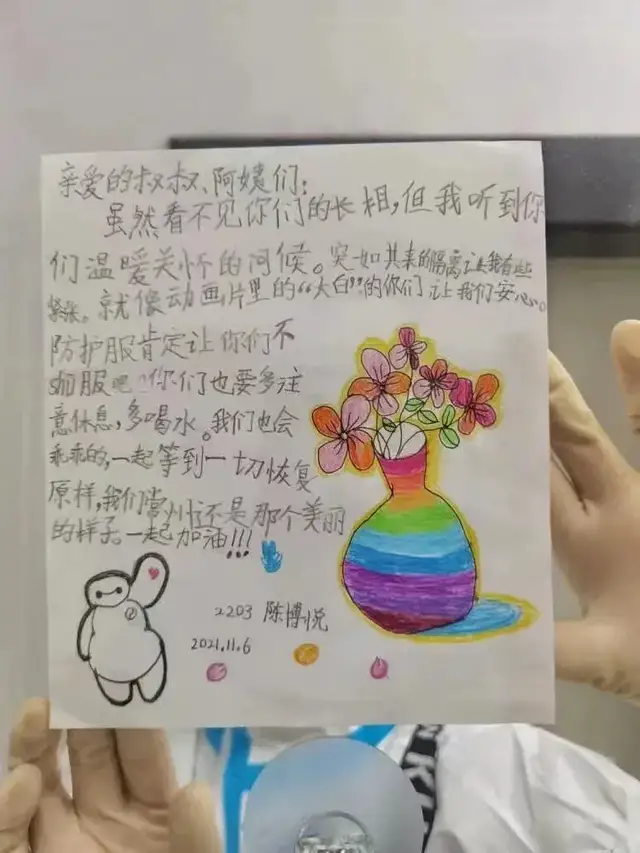 亲爱的叔叔、阿姨们：
虽然看不见你们的长相，但我听到你
们温暖关怀的问候。突如其来的隔离让我有些
紧张。就像动画片里的“大白”的你们让我们安心。
防护服肯定让你们不
shū服吧！你们也要多注
意休息，多喝水。我们也会
乖乖的，一起等到一切恢复
原样，我们常州还是那个美丽
的样子。一起加油!!!
2203 陈博悦
2021.11.6